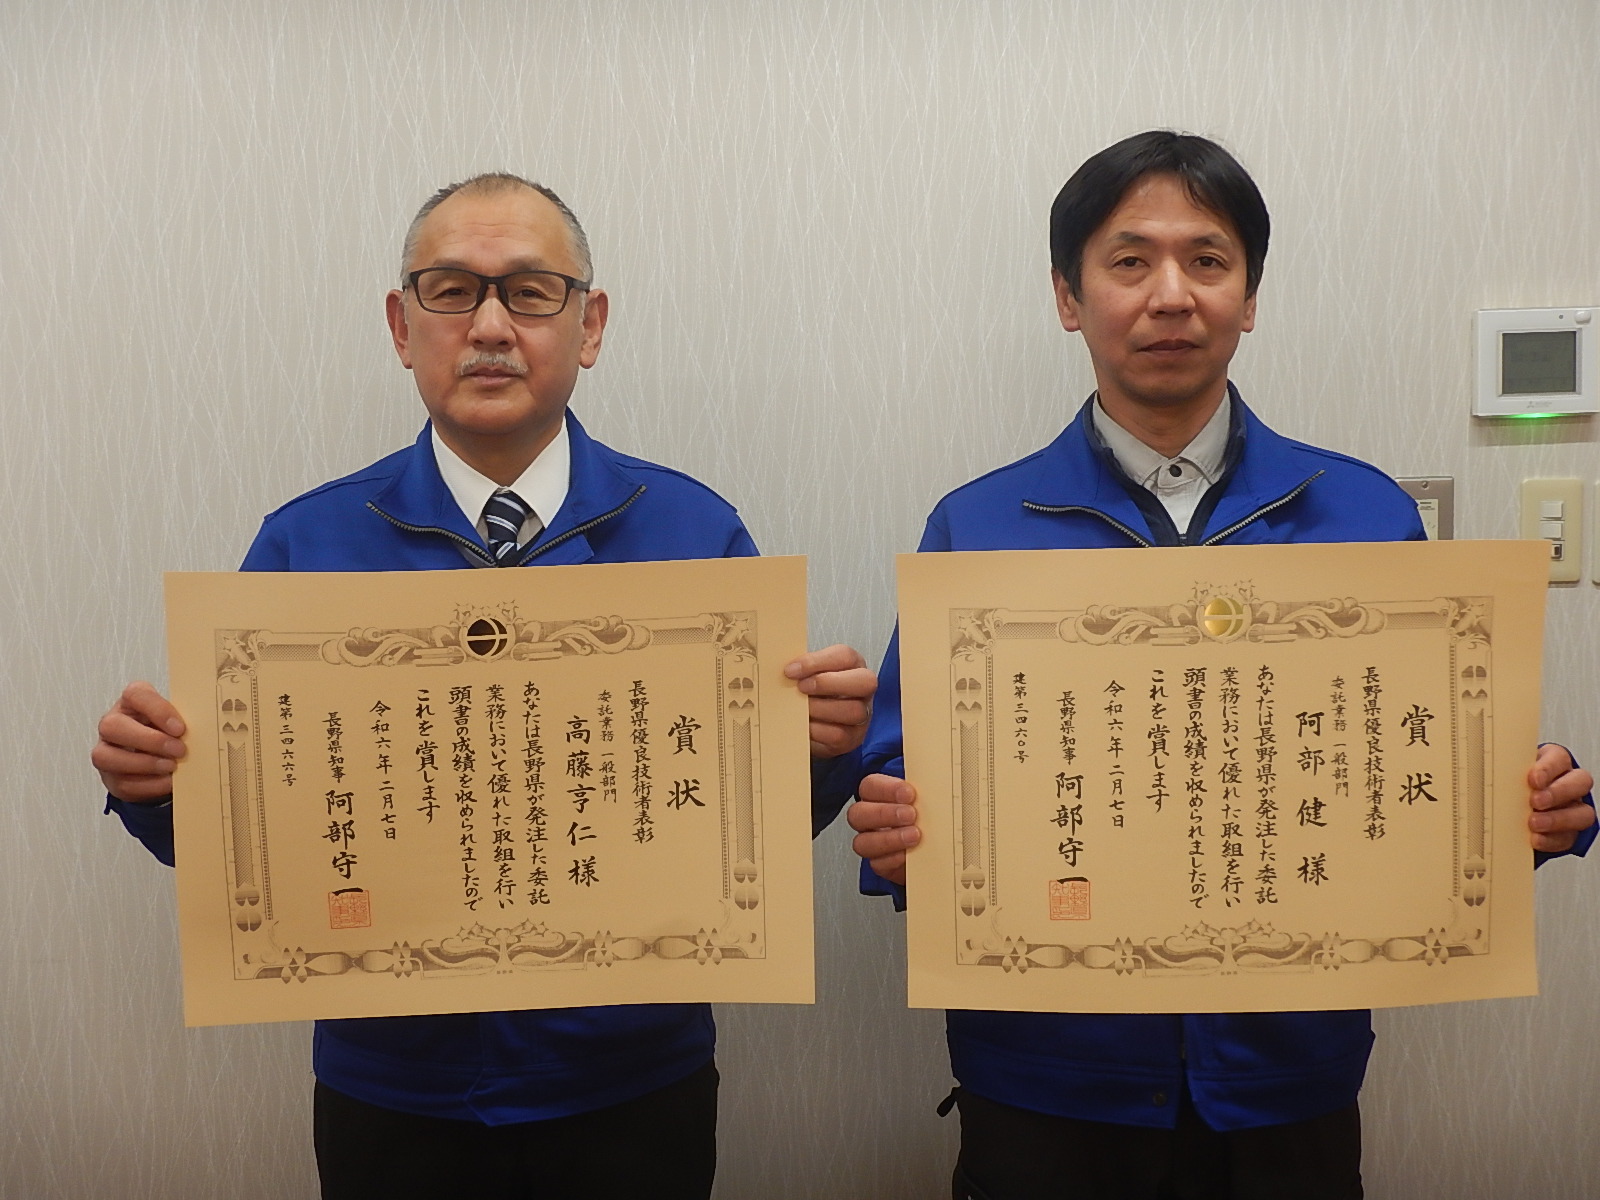 賞状
長野県優良技術者表彰
委託業務 一般部門
高藤亨仁様
あなたは長野県が発注した委託
業務において優れた取組を行い
頭書の成績を収められましたので
これを賞します
令和六年二月七日
長野県知事 阿部守一
建第三四六六号
賞状
長野県優良技術者表彰
委託業務 一般部門
阿部健様
あなたは長野県が発注した委託
業務において優れた取組を行い
頭書の成績を収められましたので
これを賞します
令和六年二月七日
長野県知事 阿部守一
建第三四六〇号